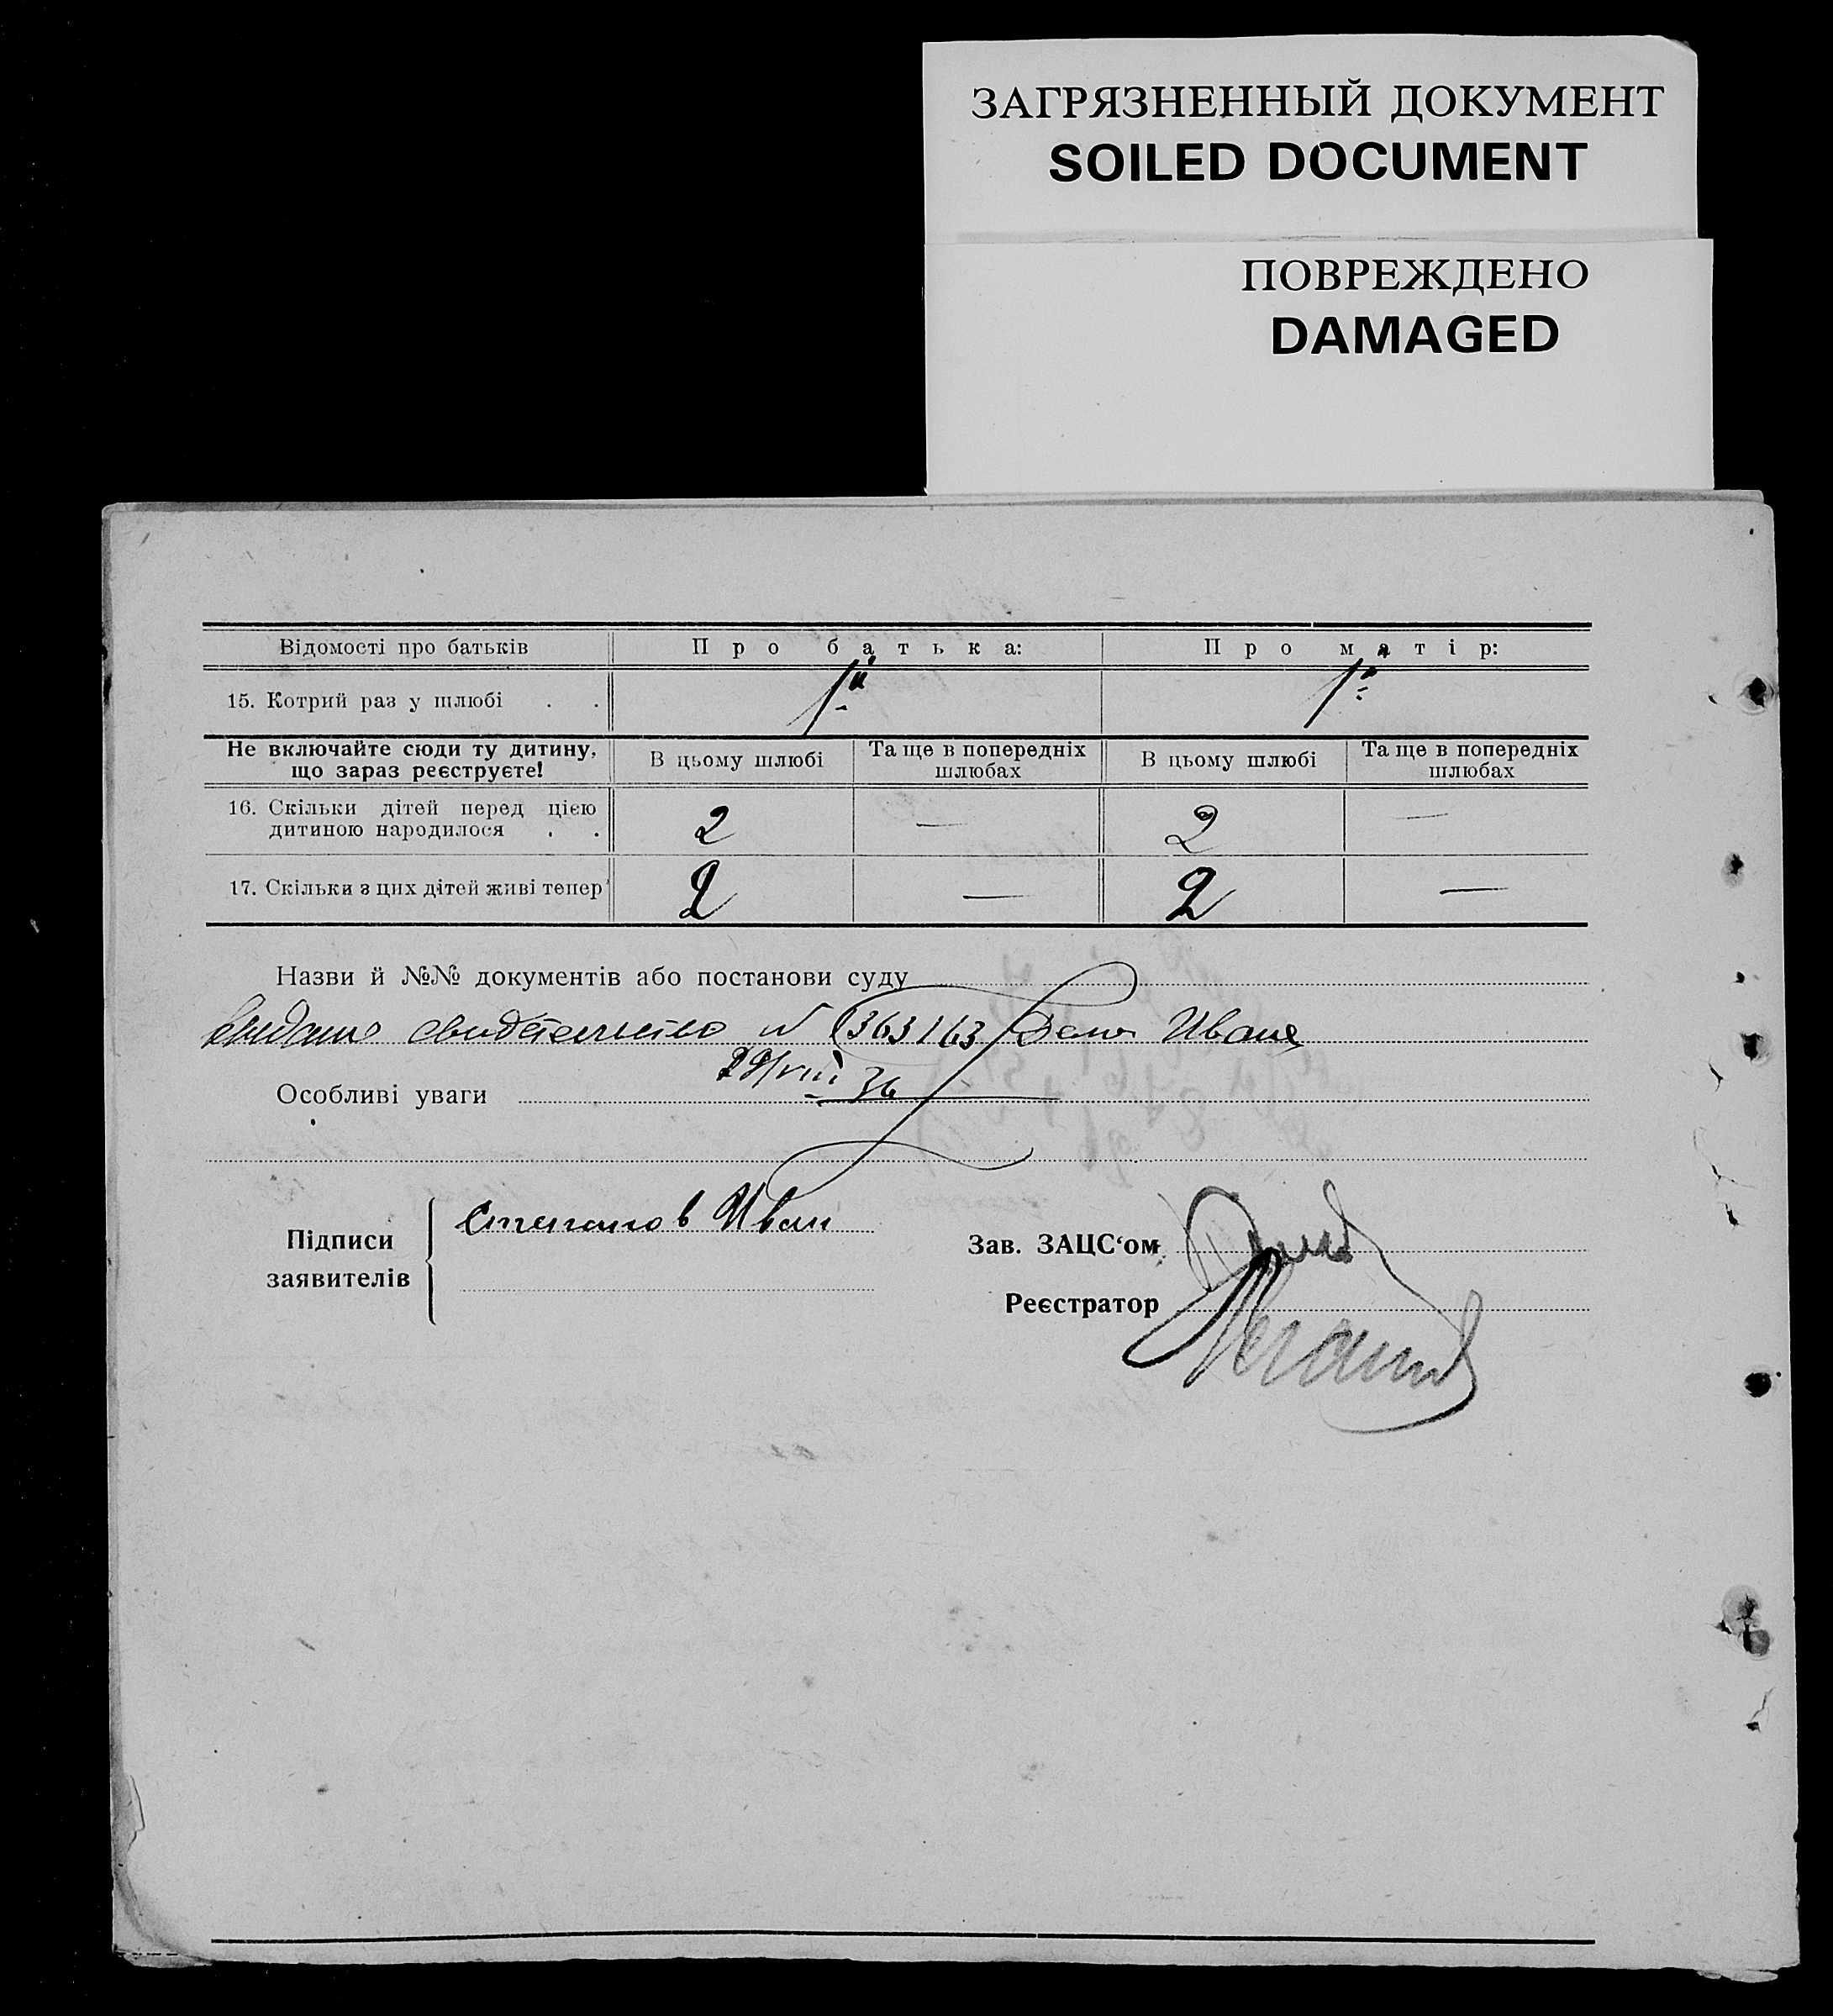 ЗАГРЯЗНЕННЫЙ ДОКУМЕНТ
SOILED DOCUMENT
ПОВРЕЖДЕНО
DAMAGED
Відомості про батьків Про батька: Про матір:
15. Котрий раз у шлюбі . . 1й 1й
Не включайте сюди ту дитину, що зараз реєструєте! В цьому шлюбі Та ще в попередніх шлюбах В цьому шлюбі Та ще в попередніх шлюбах
16. Скільки дітей перед цією
дитиною народилося . . 2 — 2 —
17. Скільки з цих дітей живі тепер 2 — 2 —
Назви й №№ документів або постанови суду
свидетельство N 363163 Ивана
29/VIII 36
Особливі уваги
Підписи заявителів Степанов Иван
Зав. ЗАЦС‘ом
Реєстратор